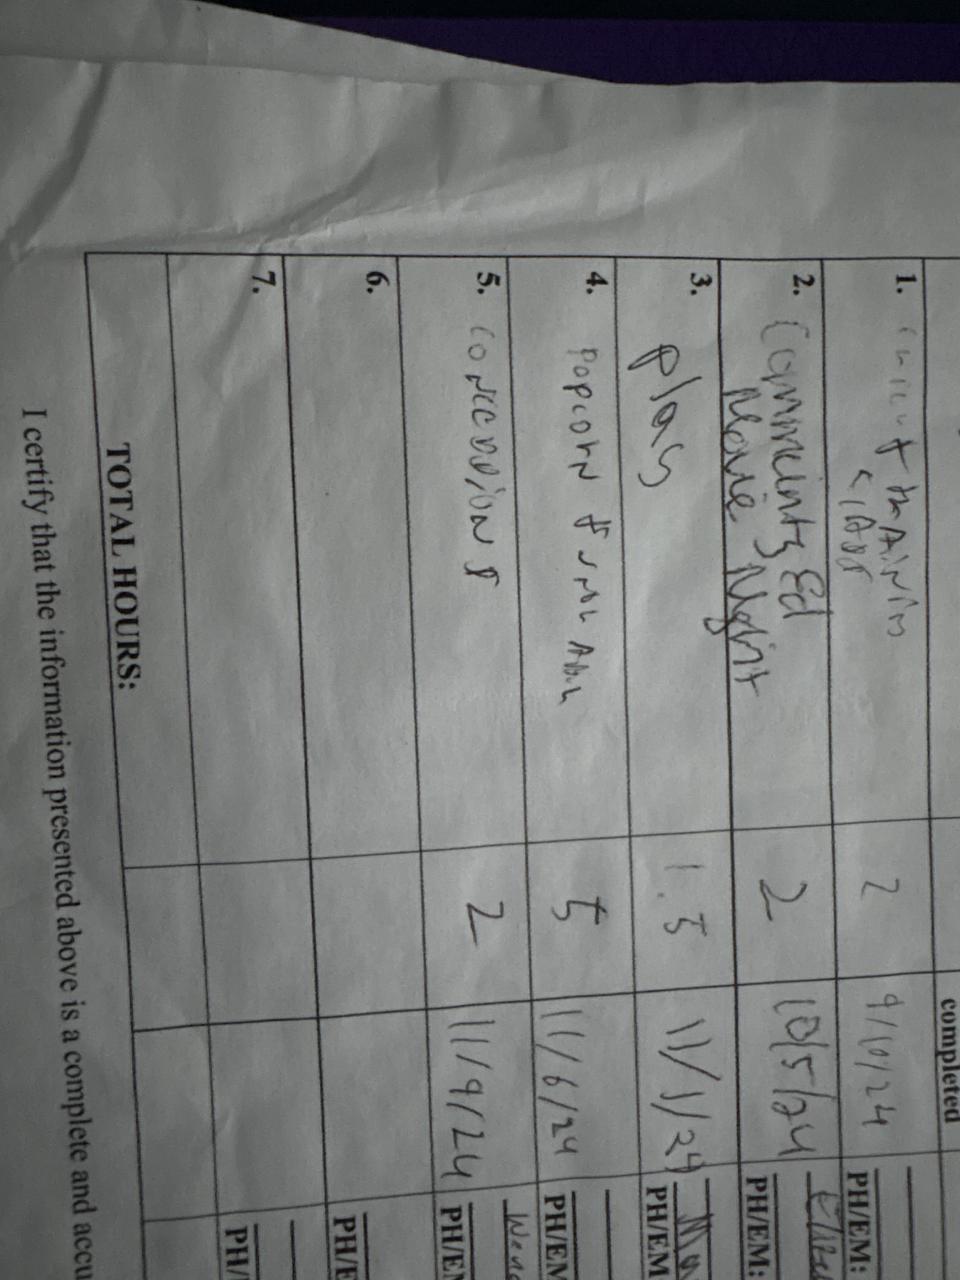 completed
1.
2
9/10/24
PH/EM:
2. Community Ed
Movie Night
2
10/5/24
PH/EM:
3. Play
1.5
11/1/24
PH/EM
4. Popcorn
5
11/6/24
PH/EM
5. CONCESSIONS
2
11/9/24
PH/EM
6.
PH/E
7.
PH/
TOTAL HOURS:
I certify that the information presented above is a complete and accu